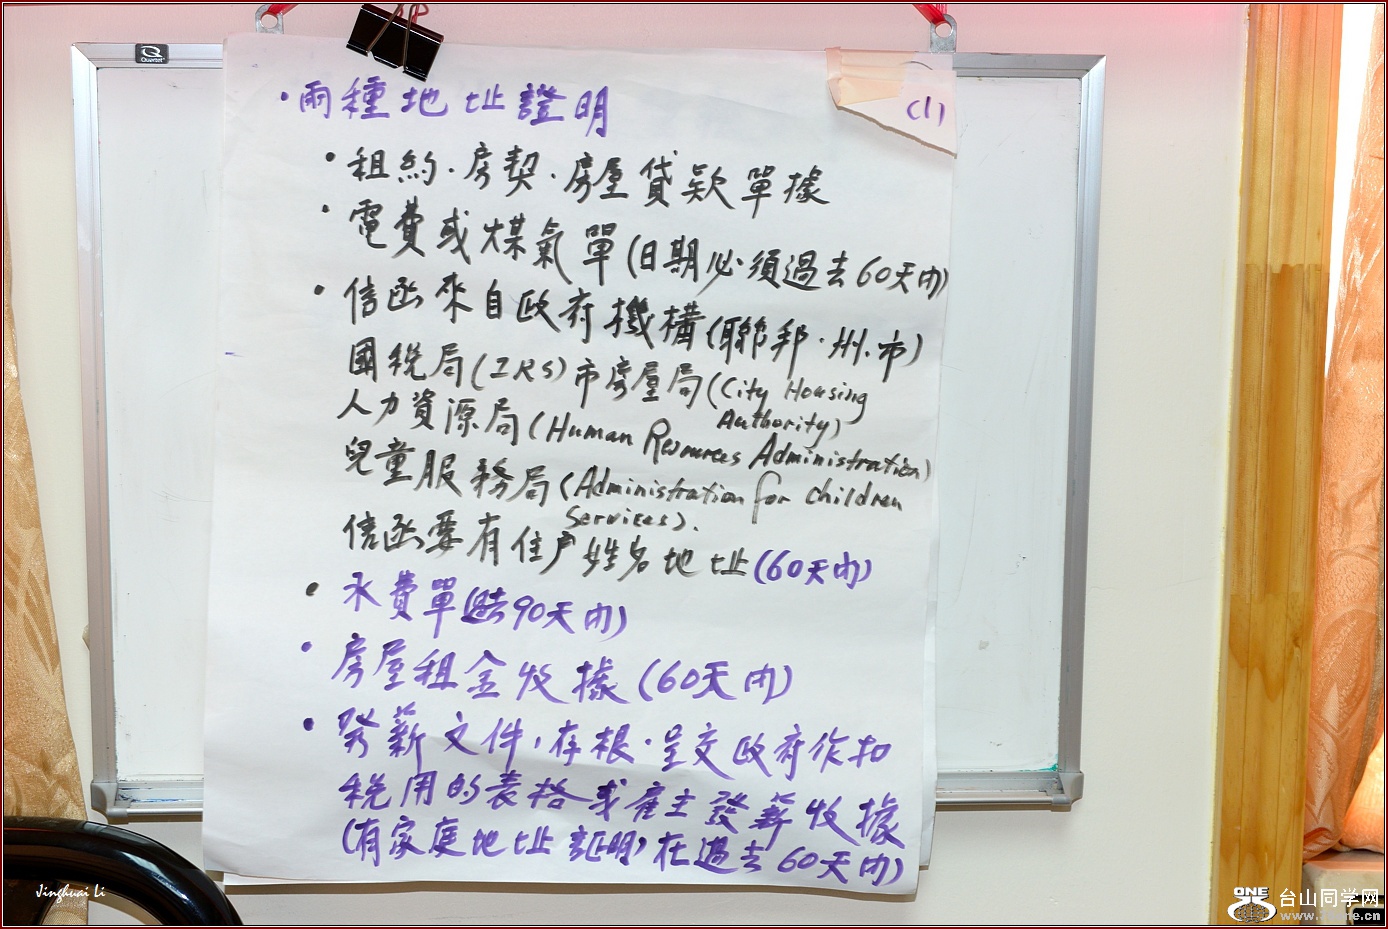 Quartet
(1)
·兩種地址證明
·租約·房契·房屋貸款單據
·電費或煤氣單(日期必須過去60天內)
·信函來自政府機構(聯邦·州·市)
國稅局(IRS)市房屋局(City Housing
Authority)
人力資源局(Human Resources Administration)
兒童服務局(Administration for Children
Services).
信函要有住戶姓名地址(60天內)
·水費單(過去90天內)
·房屋租金收據(60天內)
·發薪文件,存根·呈交政府作扣
稅用的表格或雇主發薪收據
(有家庭地址証明)在過去60天內)
Jinghuai Li
ONE
台山同学网